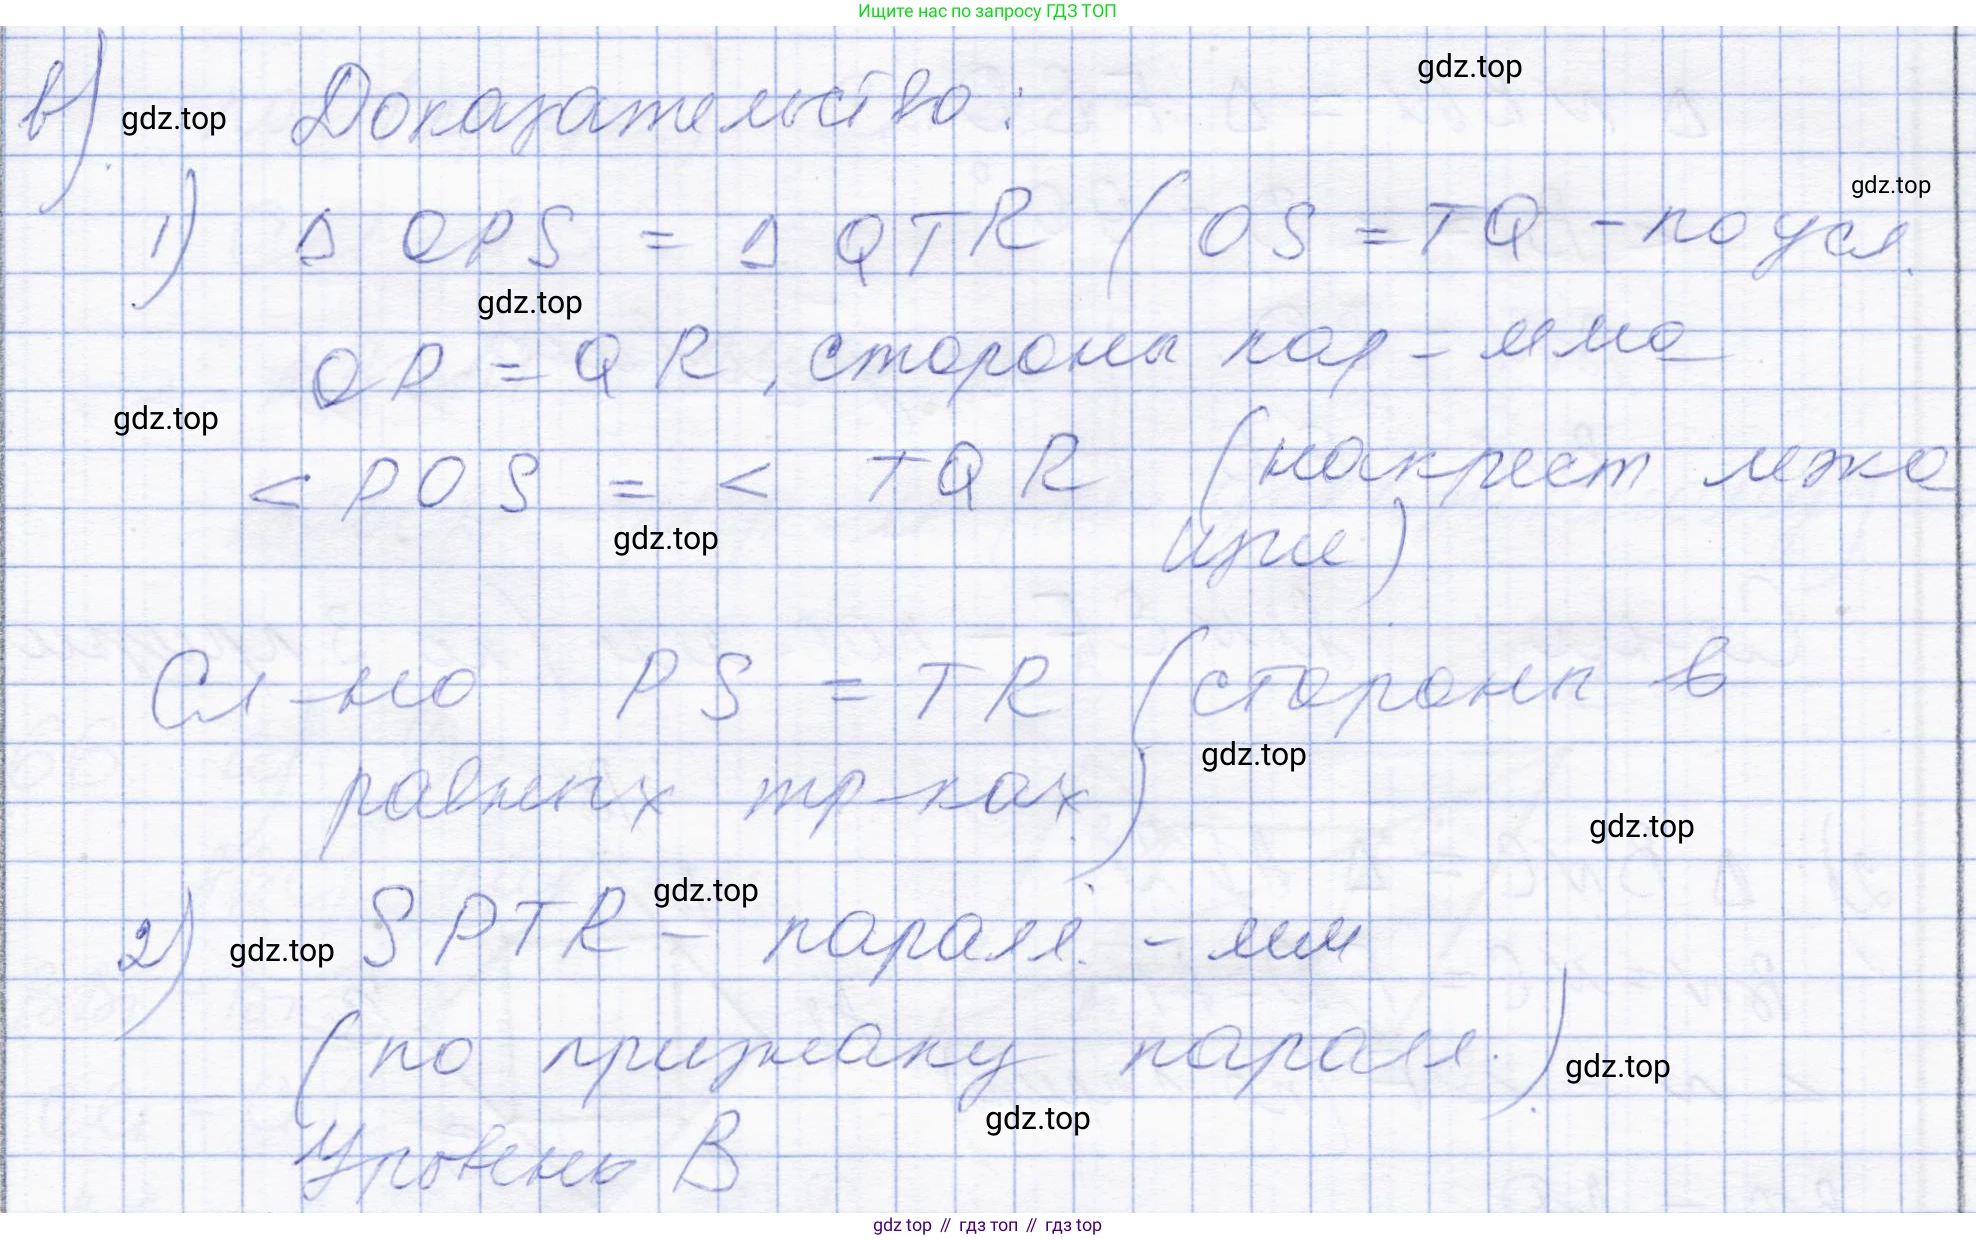 Ищите нас по запросу ГДЗ ТОП
gdz.top
в) gdz.top Доказательство:
gdz.top
1) Δ OPS = Δ QTR ( OS = TQ - по усл.
gdz.top
OP = QR, стороны пар-мма
gdz.top
< POS = < TQR (накрест лежа
gdz.top щие)
Сл-но PS = TR (стороны в
gdz.top
равных тр-ках)
gdz.top
gdz.top
2) gdz.top SPTR - паралл. - мм
(по признаку паралл.) gdz.top
gdz.top
Уровень В
gdz top // гдз топ // гдз top